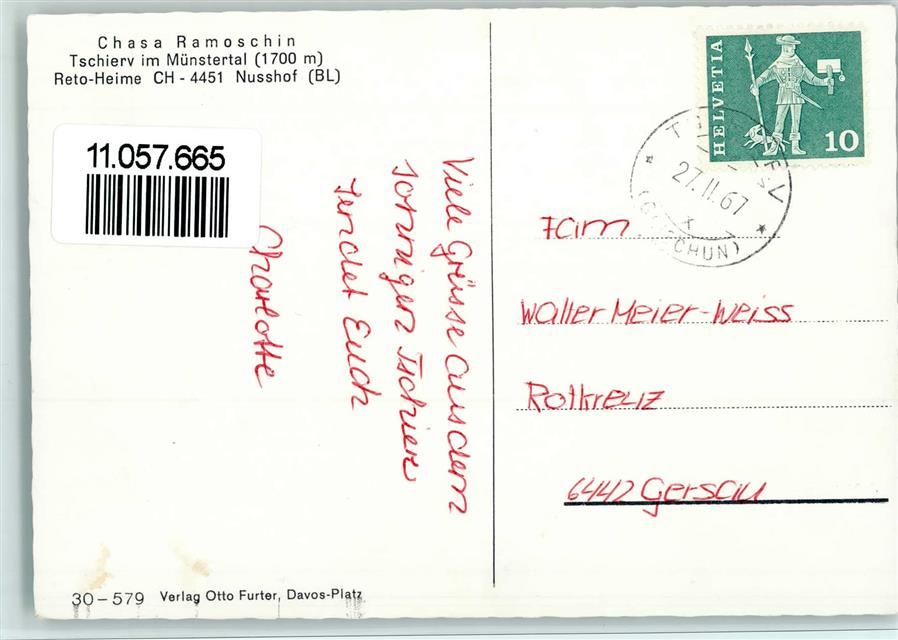 Chasa Ramoschin
Tschierv im Münstertal (1700 m)
Reto-Heime CH - 4451 Nusshof (BL)
11.057.665
Viele Grüsse aus dem
sonnigen Tschierv
sendet Euch
Charlotte
30-579 Verlag Otto Furter, Davos-Platz
HELVETIA
10
27.II.67
Fam.
Walter Meier-Weiss
Rotkreuz
6442 Gersau